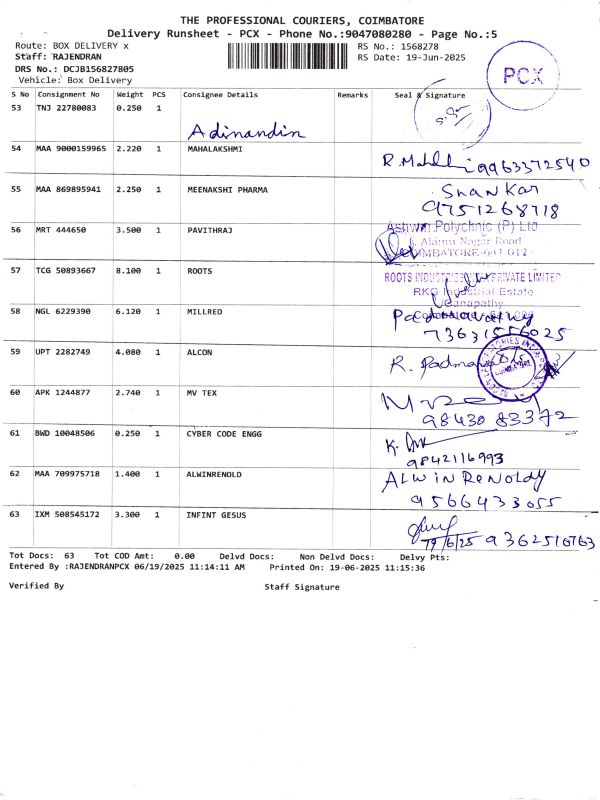 THE PROFESSIONAL COURIERS, COIMBATORE
Delivery Runsheet - PCX - Phone No.:9047080280 - Page No.:5
Route: BOX DELIVERY x
RS No.: 1568278
Staff: RAJENDRAN
RS Date: 19-Jun-2025
DRS No.: DCJB156827805
Vehicle: Box Delivery
PCX
S No Consignment No Weight PCS Consignee Details Remarks Seal & Signature
53 TNJ 22780083 0.250 1
Adinandin
54 MAA 9000159965 2.220 1 MAHALAKSHMI
9963372540
55 MAA 869895941 2.250 1 MEENAKSHI PHARMA
Shankar
9751268718
56 MRT 444650 3.500 1 PAVITHRAJ
Ashwin Polyclinic (P) Ltd
Alamu Nagar Road
COIMBATORE-641 012
57 TCG 50893667 8.100 1 ROOTS
ROOTS INDUSTRIES PRIVATE LIMITED
RKG Industrial Estate
Ganapathy
58 NGL 6229390 6.120 1 MILLRED
59 UPT 2282749 4.080 1 ALCON
R. Padma
60 APK 1244877 2.740 1 MV TEX
98430 83372
61 BWD 10048506 0.250 1 CYBER CODE ENGG
K.
9842116993
62 MAA 709975718 1.400 1 ALWINRENOLD
ALWIN RENOLDY
9566433055
63 IXM 508545172 3.300 1 INFINT GESUS
19/6/25 9362516763
Tot Docs: 63 Tot COD Amt: 0.00 Delvd Docs: Non Delvd Docs: Delvy Pts:
Entered By :RAJENDRANPCX 06/19/2025 11:14:11 AM Printed On: 19-06-2025 11:15:36
Verified By Staff Signature